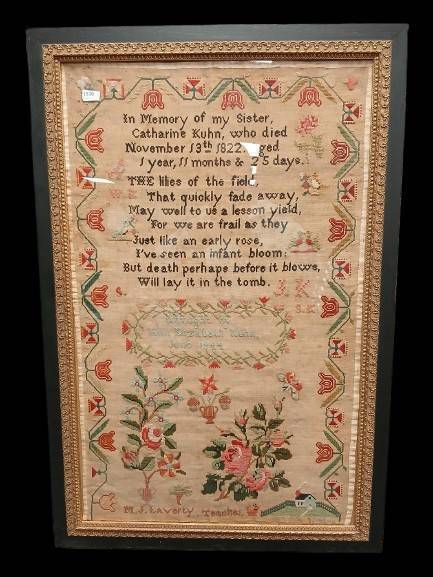 In Memory of my Sister,
Catharine Kuhn, who died
November 13th 1822. aged
1 year, 11 months & 25 days.
THE lilies of the field,
That quickly fade away,
May well to us a lesson yield,
For we are frail as they
Just like an early rose,
I've seen an infant bloom:
But death perhaps before it blows,
Will lay it in the tomb.
J.K
S.K
Elizabeth Kuhn,
M. J. Laverty Teacher